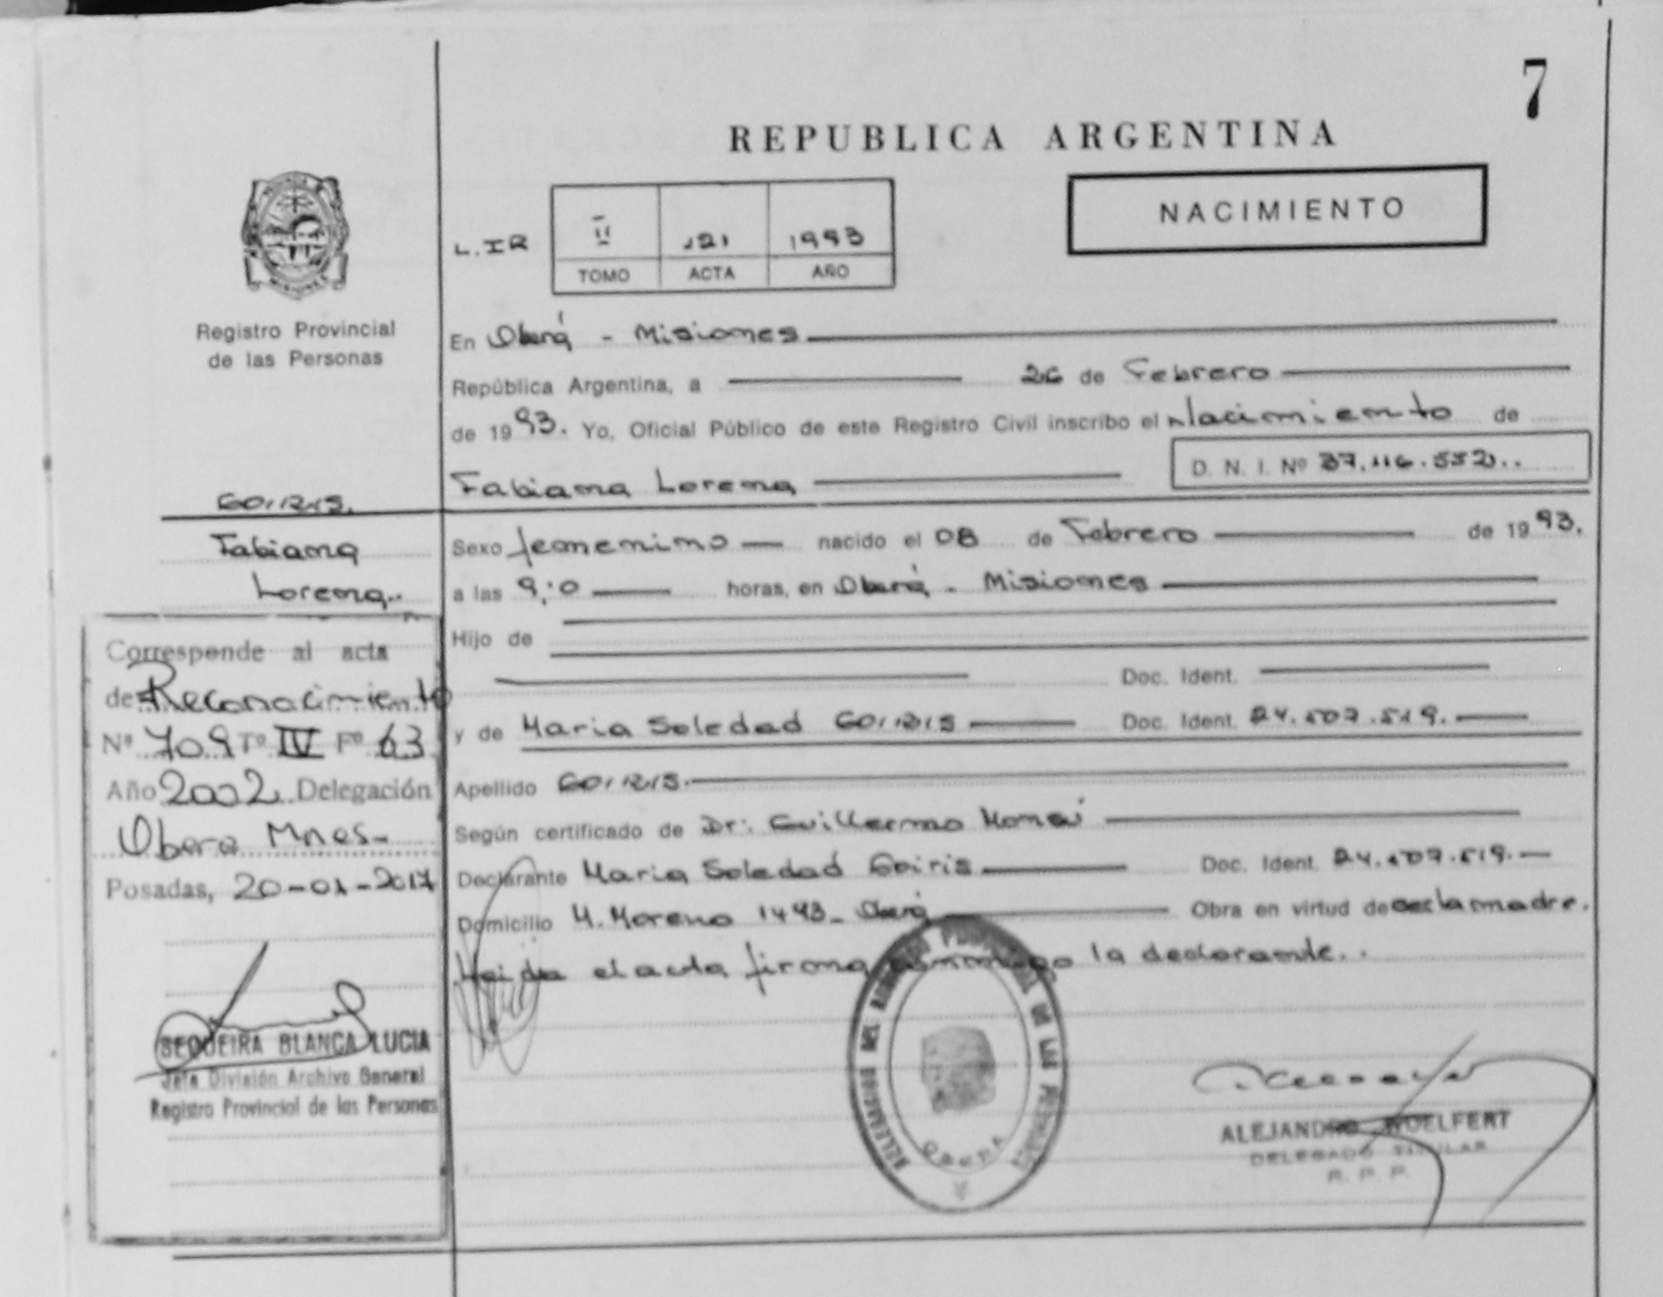 7
REPUBLICA ARGENTINA
NACIMIENTO
L.IR II 121 1993
TOMO ACTA AÑO
Registro Provincial
de las Personas
En Oberá - Misiones
República Argentina, a 26 de Febrero
de 1993. Yo, Oficial Público de este Registro Civil inscribo el Nacimiento de
Fabiana Lorena D. N. I. Nº 37.116.552..
GOIRIS.
Fabiana
Lorena..
Sexo femenino nacido el 08 de Febrero de 1993.
a las 9:0 horas, en Oberá - Misiones
Hijo de
Doc. Ident.
y de Maria Soledad GOIRIS Doc. Ident. 24.507.519.
Apellido GOIRIS.
Según certificado de Dr: Guillermo
Declarante Maria Soledad Goiris Doc. Ident. 24.507.519.
Domicilio M. Moreno 1493 - Oberá Obra en virtud de es la madre.
Leida el acta firma conmigo la declarante..
Corresponde al acta
de Reconocimiento
Nº 709 Tº IV Fº 63
Año 2002 Delegación
Obera Mnes-
Posadas, 20-01-2017
SEQUEIRA BLANCA LUCIA
Jefa División Archivo General
Registro Provincial de las Personas
OBERA
ALEJANDRO WOELFERT
DELEGADO TITULAR
R. P. P.